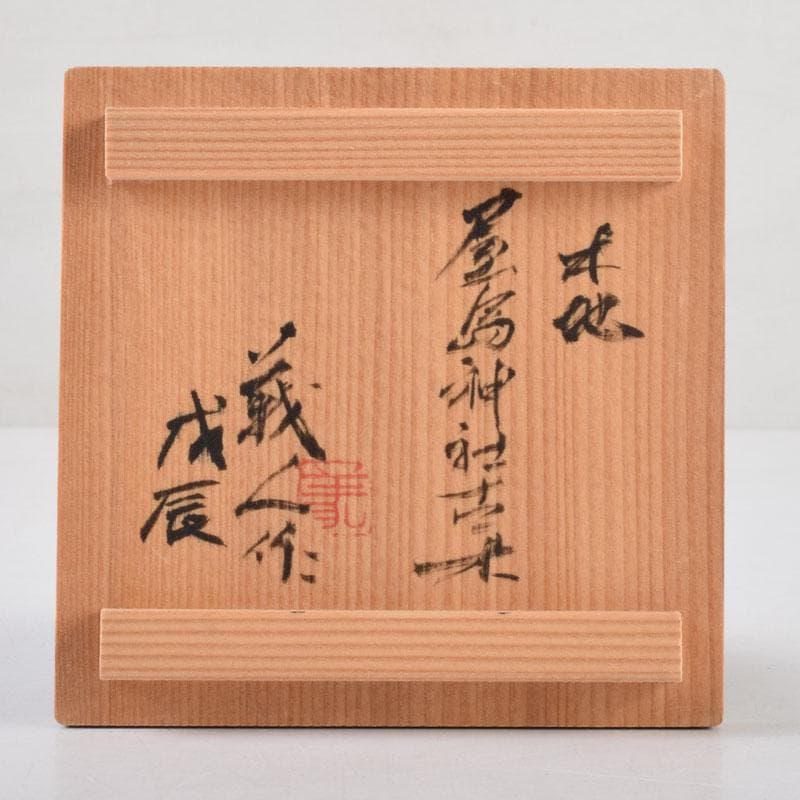 木地
屋島神社古木
義人作
戊辰